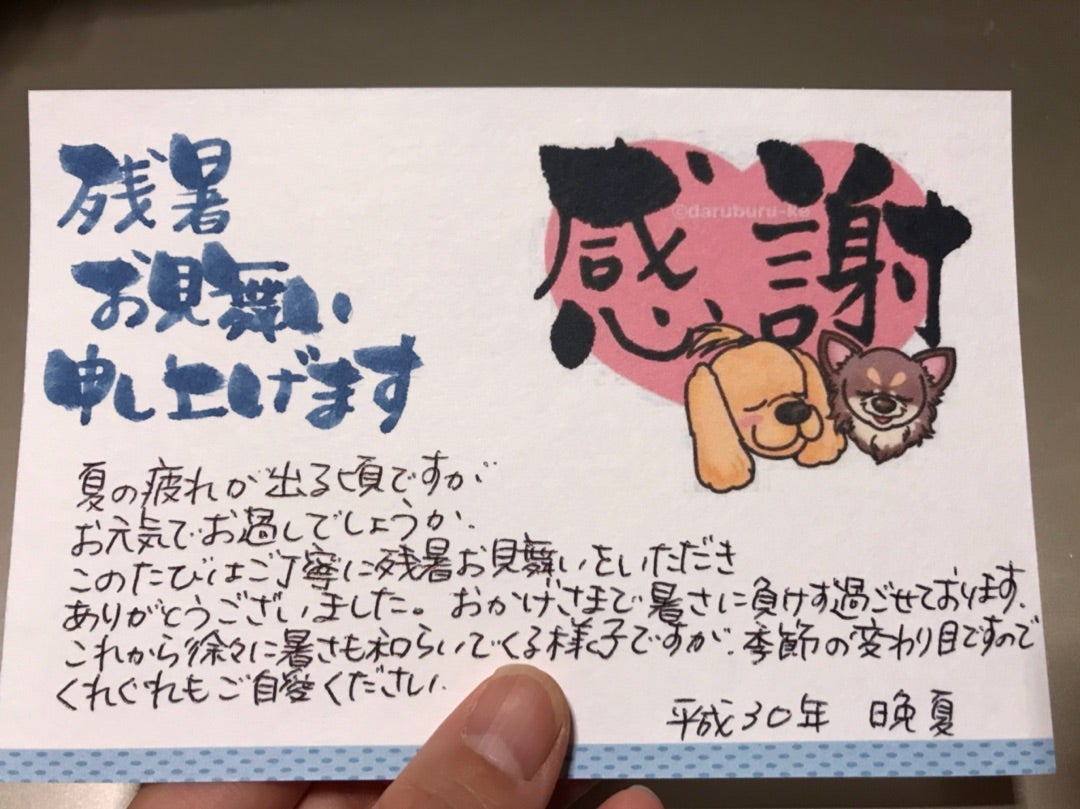 残暑
お見舞い
申し上げます
感謝
©daruburu-ke
夏の疲れが出る頃ですが
お元気でお過しでしょうか.
このたびはご丁寧に残暑お見舞いをいただき
ありがとうございました。おかげさまで暑さに負けず過ごせております.
これから徐々に暑さも和らいでくる様子ですが.季節の変わり目ですので
くれぐれもご自愛ください.
平成30年 晩夏